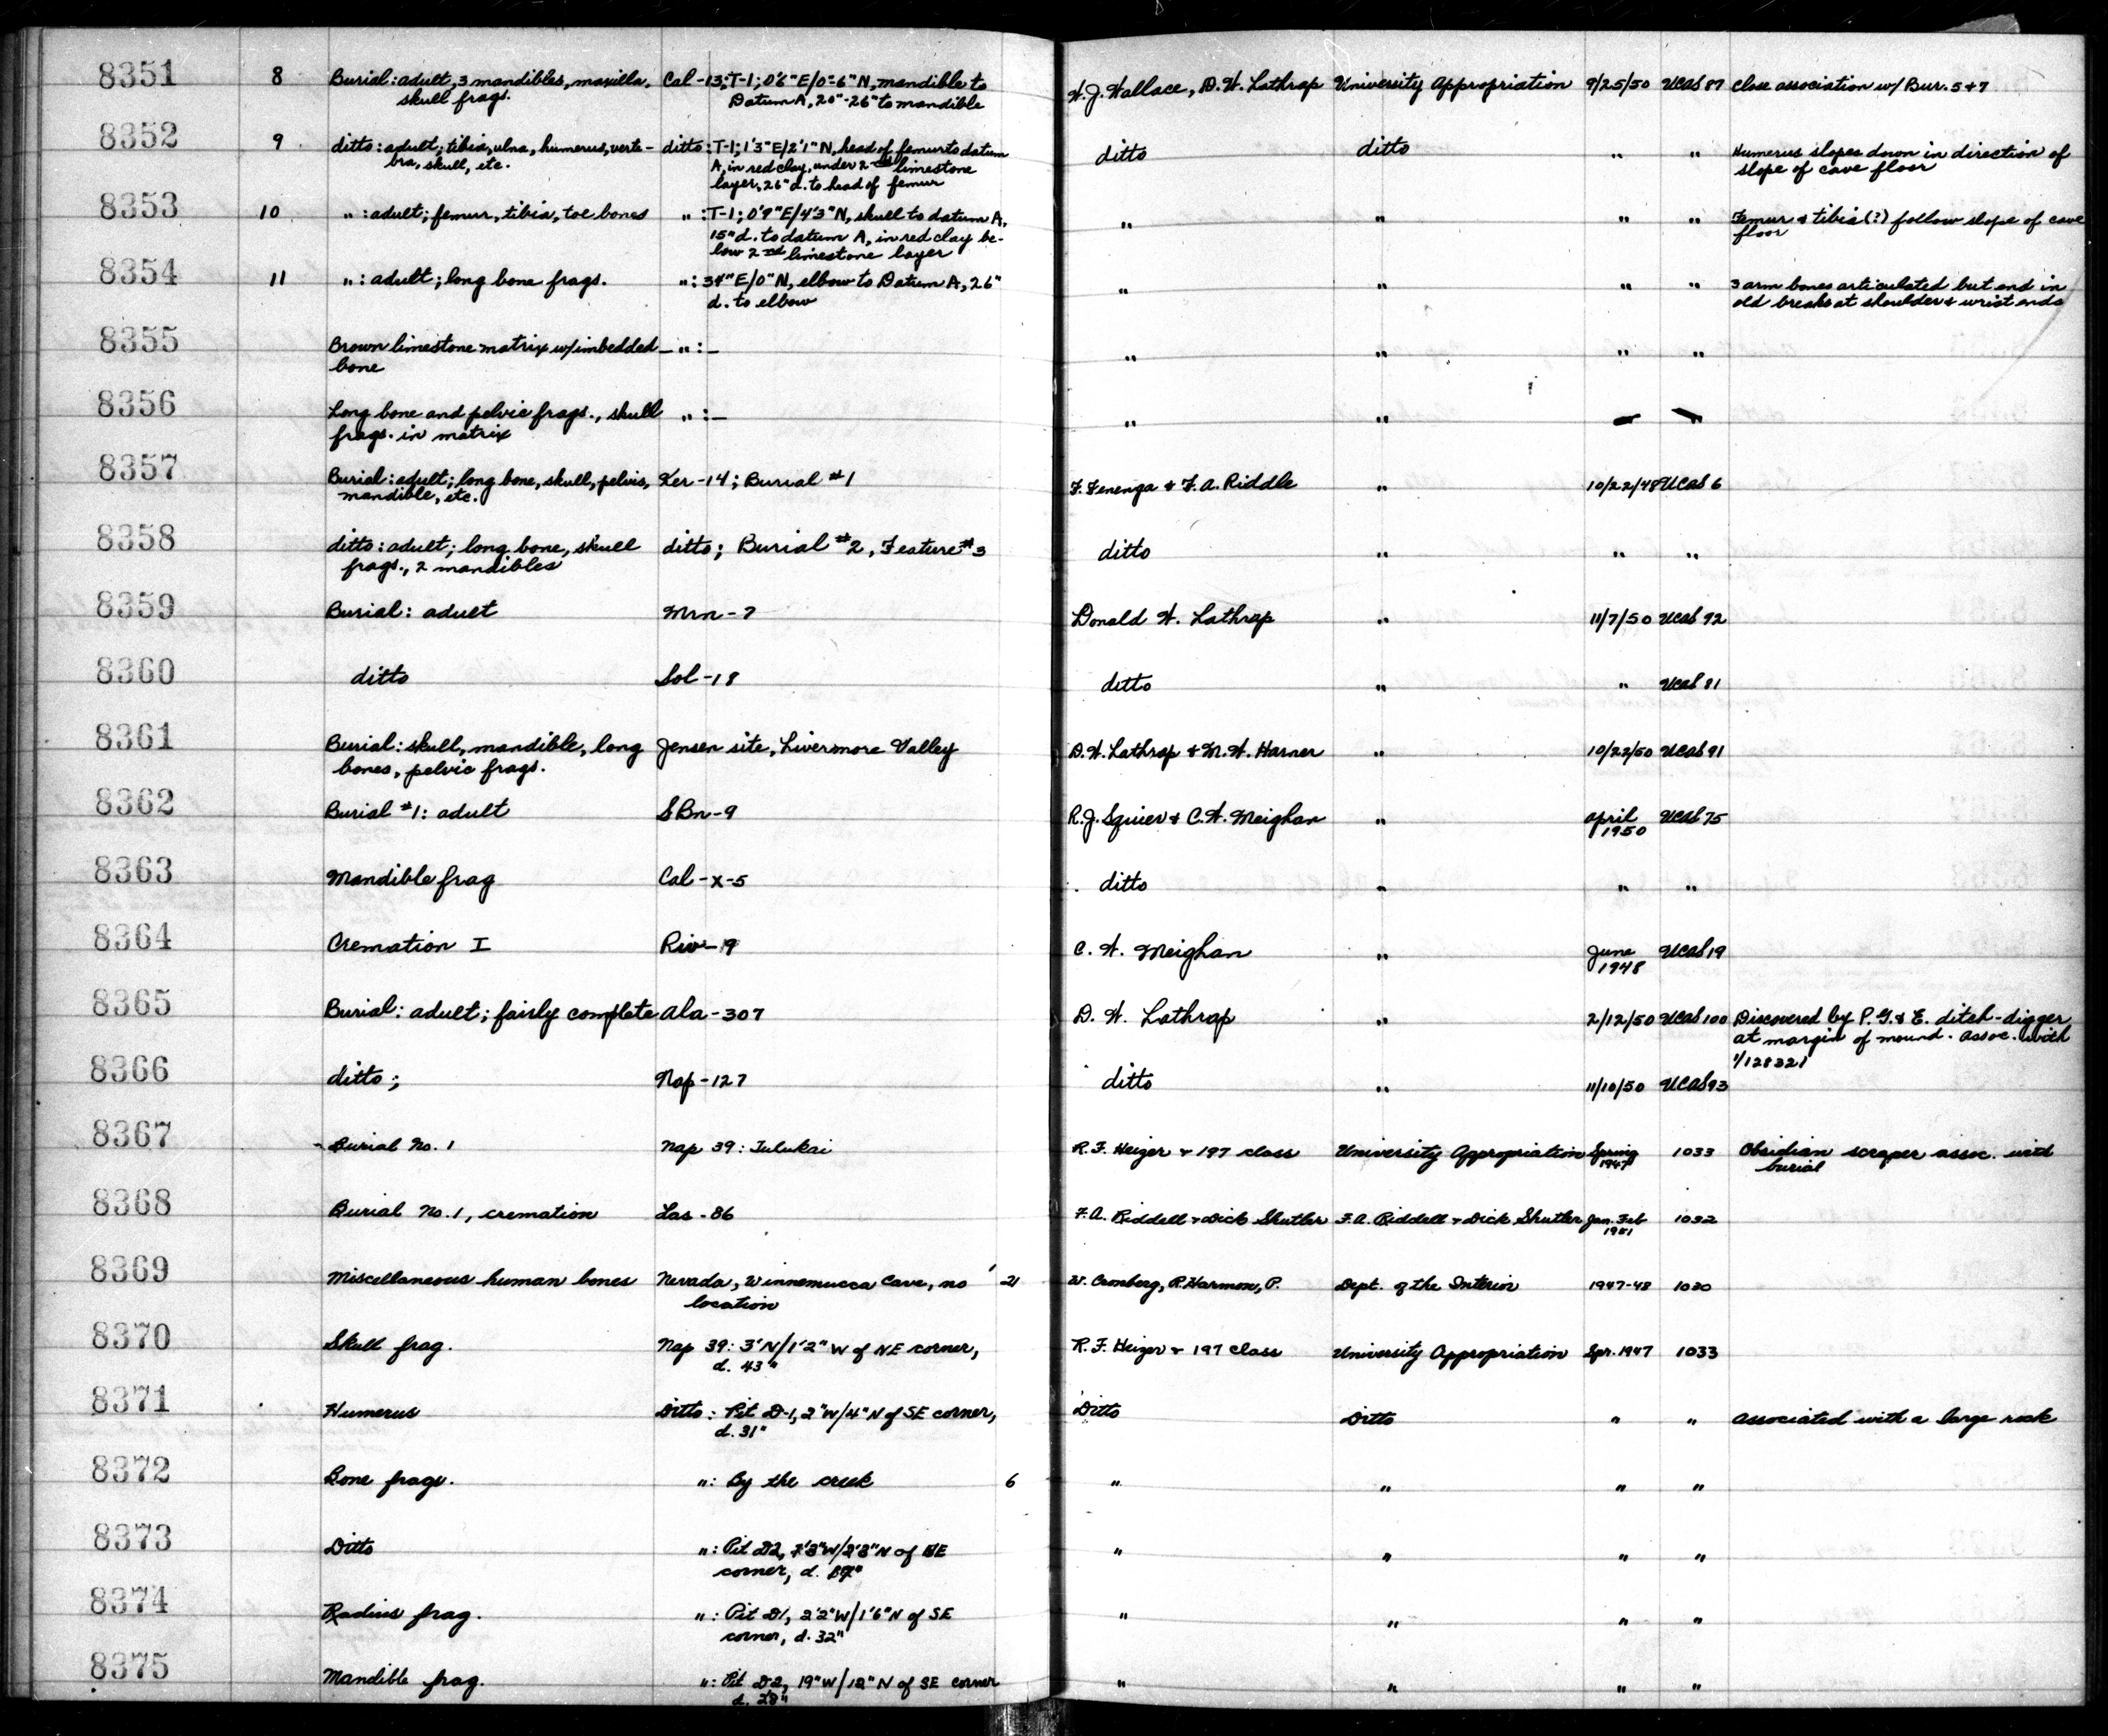 8351 8 Burial: adult, 3 mandibles, maxilla, Cal-13; T-1; 0'6"E/0'-6"N, mandible to W.J. Wallace, D.W. Lathrap University Appropriation 9/25/50 UCAS 87 Close association w/ Bur. 5+7
skull frags. Datum A, 20"-26" to mandible
8352 9 ditto: adult; tibia, ulna, humerus, verte- ditto: T-1; 1'3"E/2'1"N, head of femur to datum ditto ditto " " Humerus slopes down in direction of
bra, skull, etc. A, in red clay, under 2nd limestone slope of cave floor
layer, 26" d. to head of femur
8353 10 " : adult; femur, tibia, toe bones " : T-1; 0'9"E/4'3"N, skull to datum A, " " " " Femur & tibia(?) follow slope of cave
15" d. to datum A, in red clay be- floor
low 2nd limestone layer
8354 11 " : adult; long bone frags. " : 34"E/0"N, elbow to Datum A, 26" " " " " 3 arm bones articulated but end in
d. to elbow old breaks at shoulder & wrist ends
8355 Brown limestone matrix w/imbedded — " : — " " " "
bone
8356 Long bone and pelvic frags., skull " : — " "
frags. in matrix
8357 Burial: adult; long bone, skull, pelvis, Ker-14; Burial #1 F. Fenenga & F.A. Riddle " 10/22/48 UCAS 6
mandible, etc.
8358 ditto: adult; long bone, skull ditto; Burial #2, Feature #3 ditto " " "
frags., 2 mandibles
8359 Burial: adult Mrn-7 Donald W. Lathrap " 11/7/50 UCAS 92
8360 ditto Sol-18 ditto " " UCAS 81
8361 Burial: skull, mandible, long Jensen site, Livermore Valley D.W. Lathrap & M.W. Harner " 10/22/50 UCAS 91
bones, pelvic frags.
8362 Burial #1: adult SBn-9 R.J. Squier & C.W. Meighan " April UCAS 75
1950
8363 Mandible frag Cal-X-5 ditto " " "
8364 Cremation I Riv-19 C. W. Meighan " June UCAS 19
1948
8365 Burial: adult; fairly complete Ala-307 D. W. Lathrap " 2/12/50 UCAS 100 Discovered by P. G. & E. ditch-digger
at margin of mound. Assoc. with
1/128321
8366 ditto; Nap-127 ditto " 11/10/50 UCAS 93
8367 Burial No. 1 Nap 39: Tulukai R.F. Heizer + 197 class University Appropriation Spring 1033 Obsidian scraper assoc. with
1947 burial
8368 Burial No. 1, cremation Las-86 F.A. Riddell + Dick Shutler F.A. Riddell + Dick Shutler Jan. Feb 1032
1951
8369 Miscellaneous human bones Nevada, Winnemucca Cave, no 21 W. Cromberg, R. Harmon, P. Dept. of the Interior 1947-48 1030
location
8370 Skull frag. Nap 39: 3'N/1'2"W of NE corner, R.F. Heizer + 197 class University Appropriation Spr. 1947 1033
d. 43"
8371 Humerus Ditto: Pit D-1, 2"W/4"N of SE corner, Ditto Ditto " " associated with a large rock
d. 31"
8372 Bone frags. " : By the creek 6 " " " "
8373 Ditto " : Pit D2, 7'8"W/2'8"N of SE " " " "
corner, d.
8374 Radius frag. " : Pit D1, 2'2"W/1'6"N of SE " " " "
corner, d. 32"
8375 Mandible frag. " : Pit D2, 19"W/12"N of SE corner " " " "
d. 28"